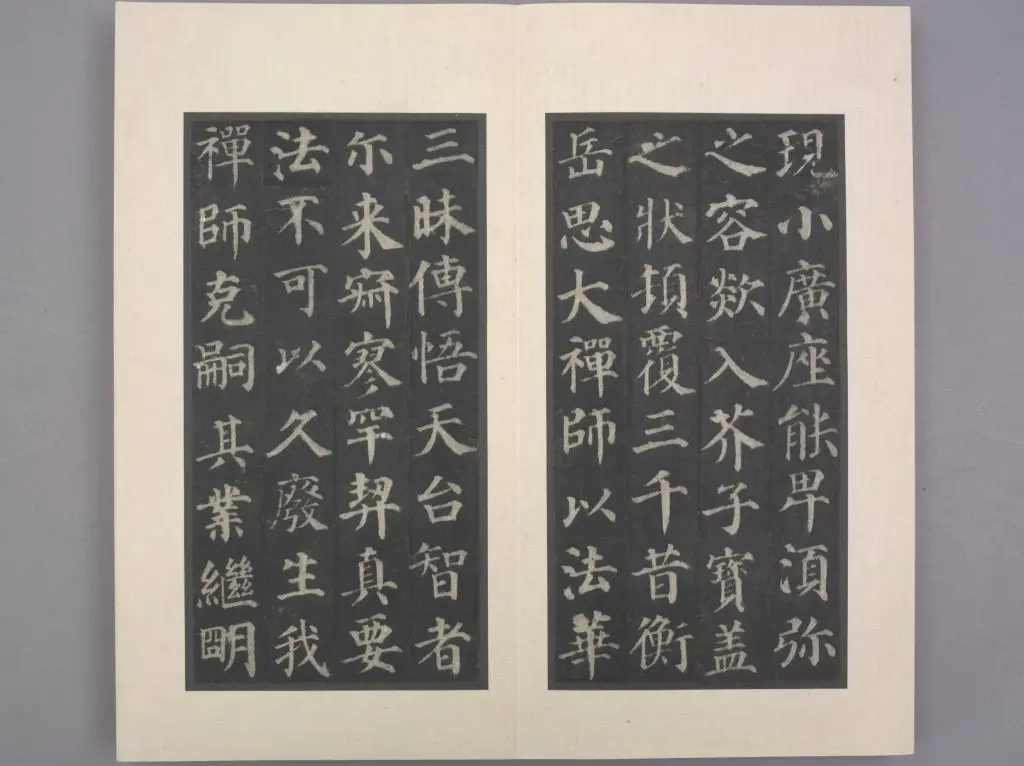 現小廣座能卑湏弥
之容欻入芥子寶盖
之狀頂覆三千昔衡
岳思大禪師以法華
三昧傳悟天台智者
尔来寂寥罕契真要
法不可以久廢生我
禪師克嗣其業繼明